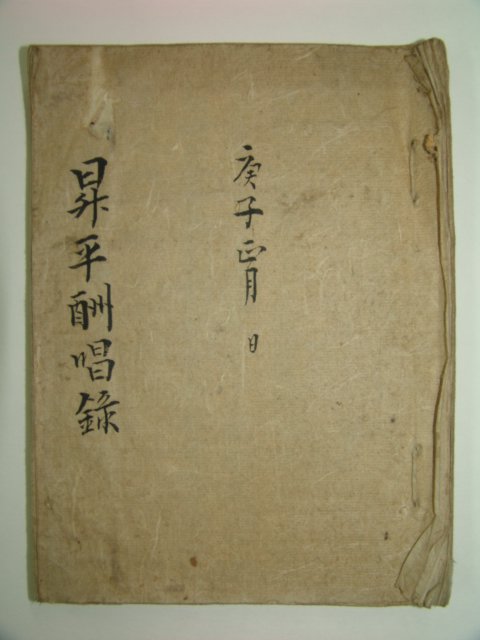 庚子正月 日
昇平酬唱錄